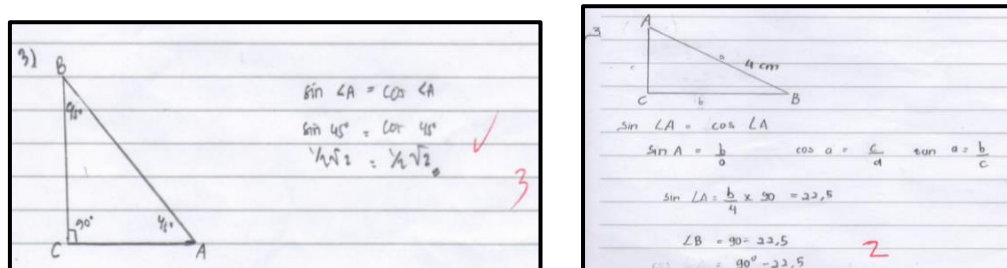 3)
B
45°
90°
45°
C
A
sin ∠A = cos ∠A
sin 45° = cos 45°
½√2 = ½√2
3
3
A
c
a
4 cm
C
b
B
sin ∠A = cos ∠A
sin A = b/a cos a = c/a tan a = b/c
sin ∠A = b/4 x 90 = 22,5
∠B = 90 - 22,5
2
= 90° - 22,5